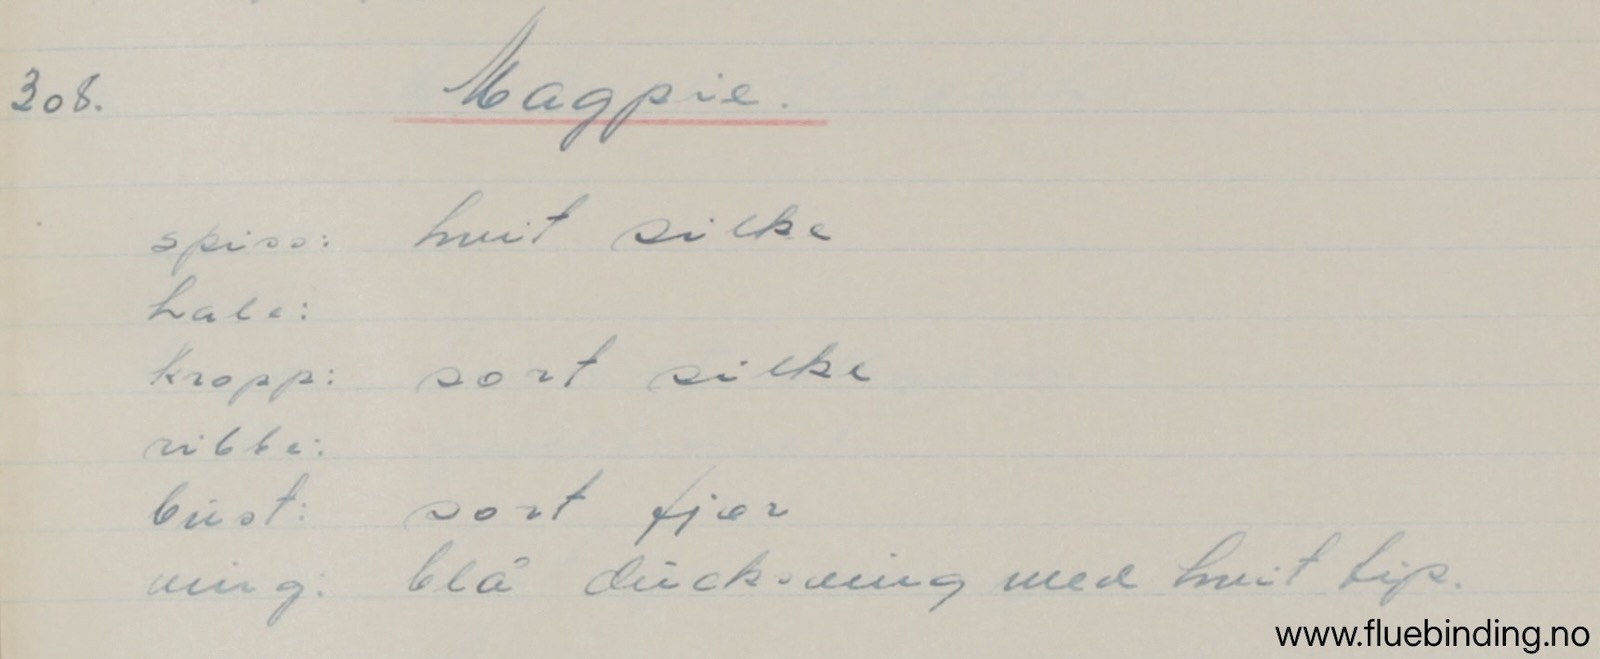 308. Magpie.
spiss: hvit silke
hale:
kropp: sort silke
ribbe:
bust: sort fjær
ving: blå duck-wing med hvit tip.
www.fluebinding.no